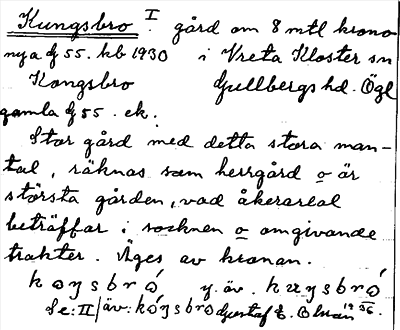 Kungsbro I. gård om 8 mtl krono
nya Ɠ 55. kb 1930 i Vreta Kloster sn
Kongsbro Gullbergs hd. Ögl
gamla Ɠ 55. ek.
Stor gård med detta stora man-
tal, räknas som herrgård o är
största gården, vad åkerareal
beträffar i socknen o omgivande
trakter. Äges av kronan.
y. äv.
Se: II/äv: Gustaf E. Olsson 19 56.